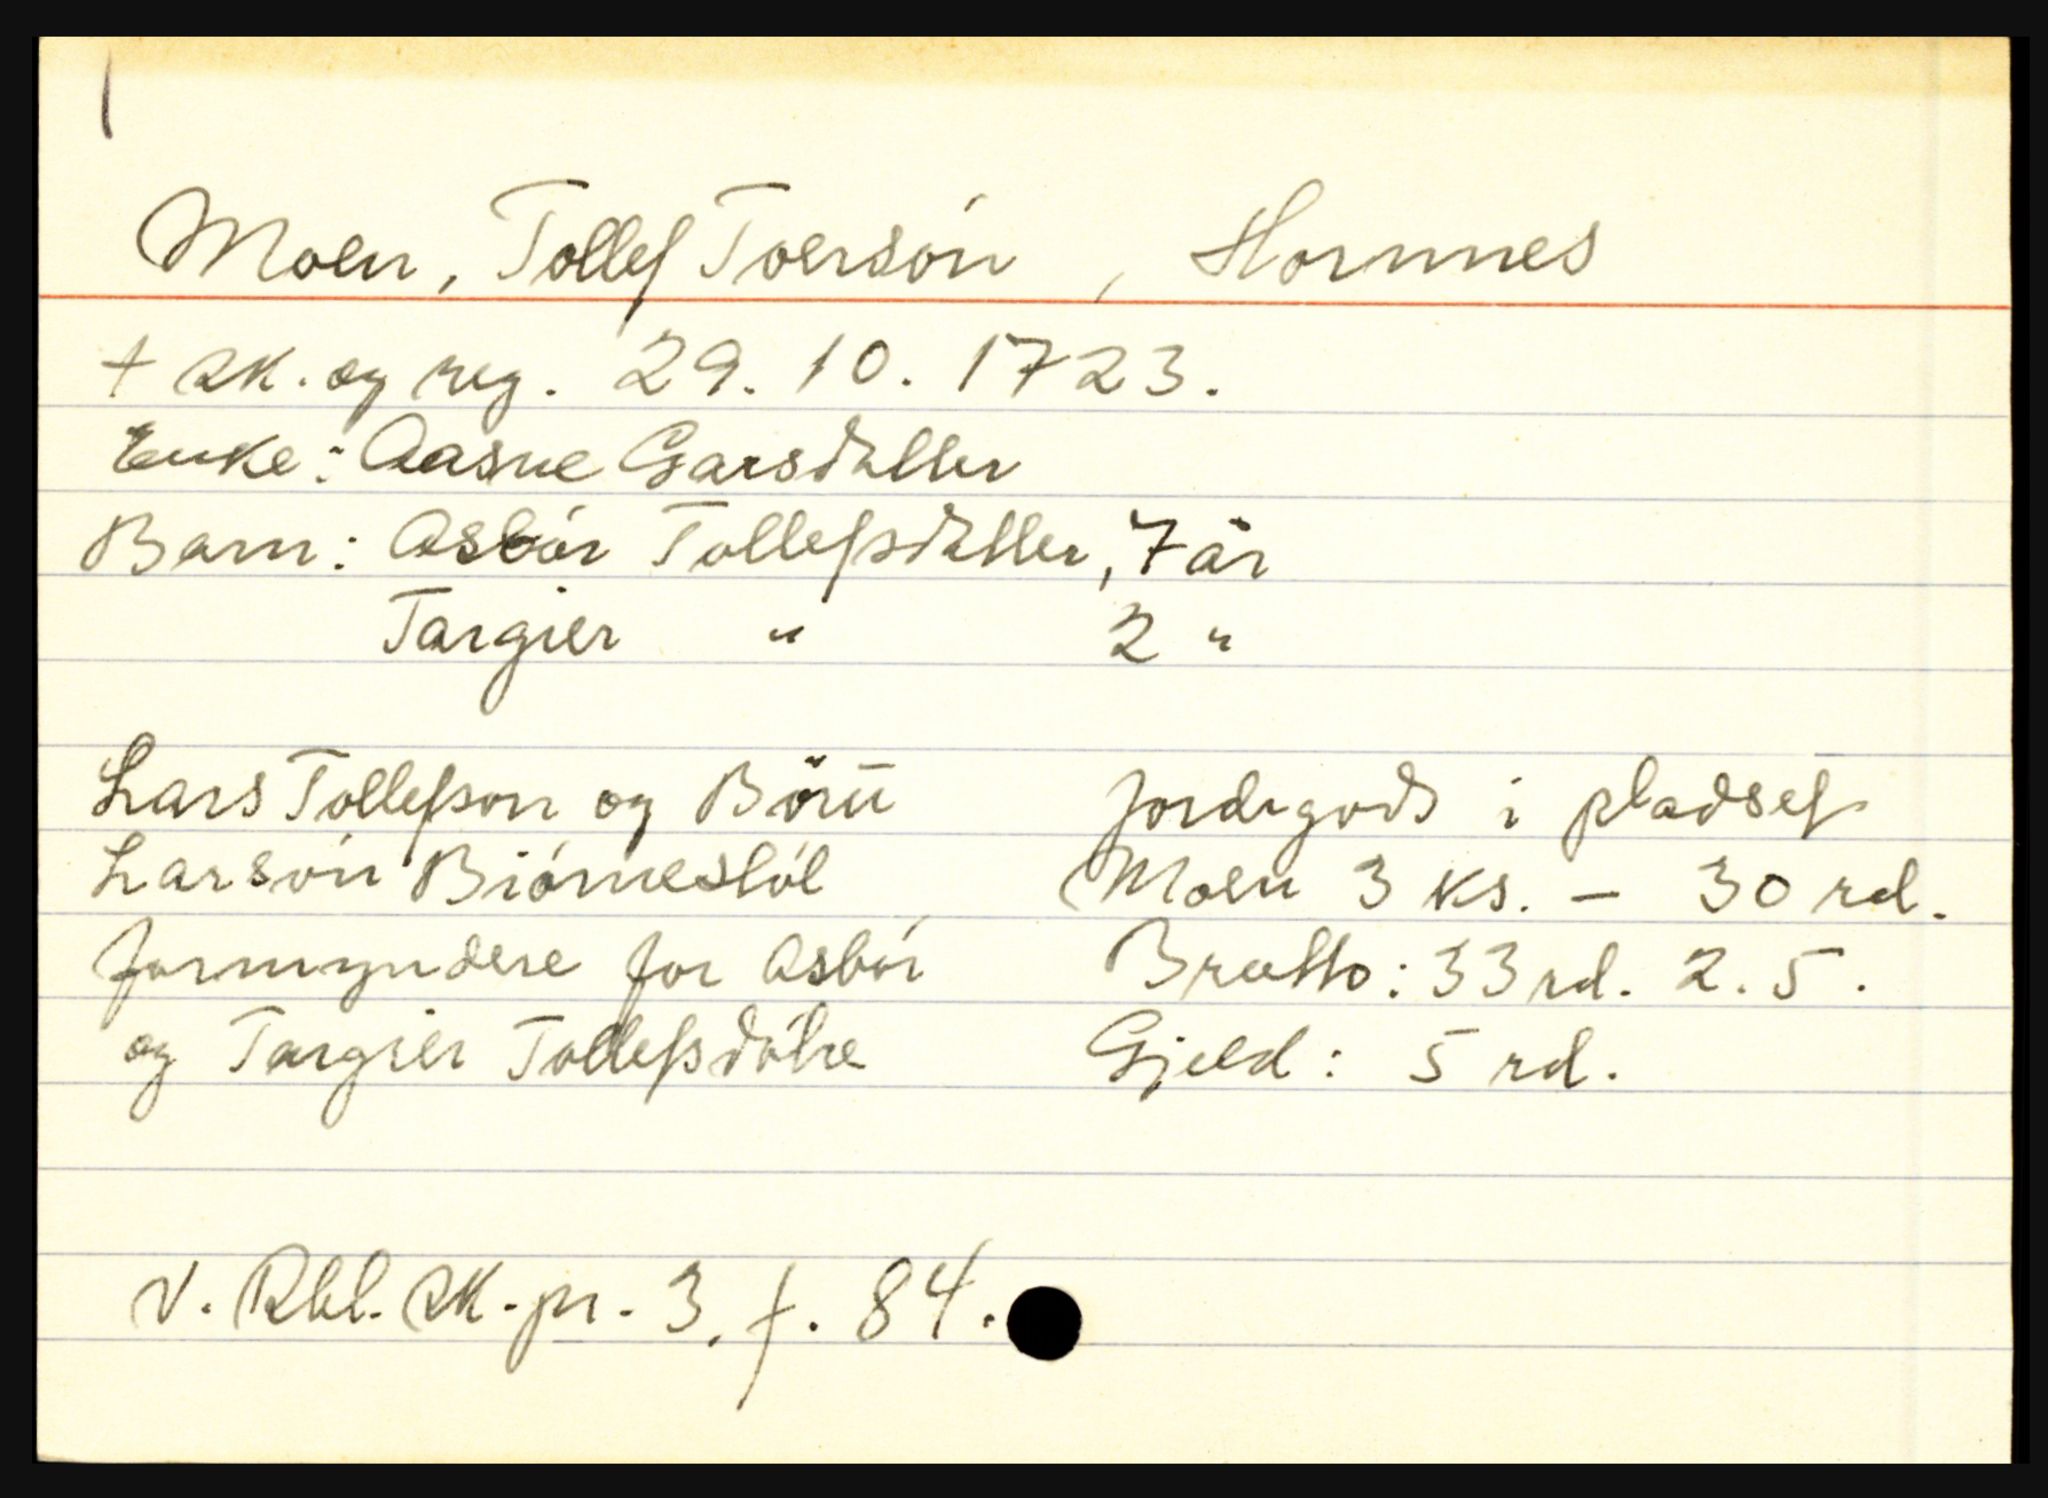 Moen, Tollef Toersón, Hornnes
+ sk. og reg. 29. 10. 1723.
Enke: Aasne Garsdatter
Barn: Asbór Tollefsdatter, 7 år
Targier " 2 "
Lars Tollefson og Börü
Larsón Biórnestöl
formyndere for Asbór
og Targier Tollefsdótre
Jordegods i pladsef
Moen 3 ks. - 30 rd.
Brutto: 33 rd. 2. 5.
Gjeld: 5 rd.
V. Rbl. sk. pr. 3. f. 84.